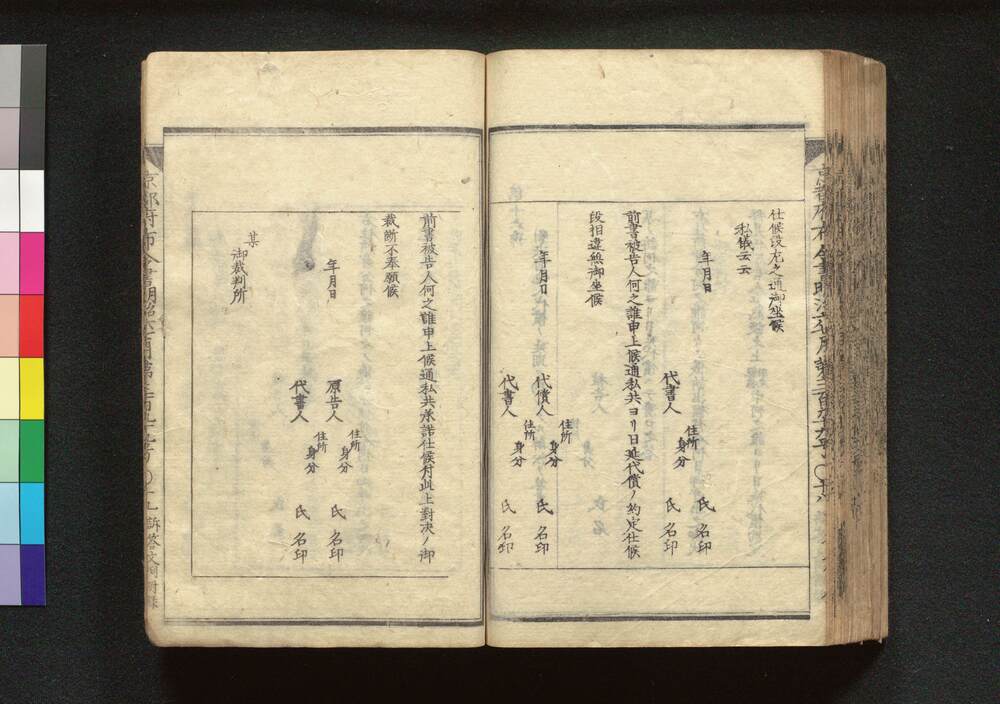 仕候段左之通御坐候
私儀云云
年月日
氏名印
代書人
住所
身分
氏名印
前書被告人何之誰申上候通私共ヨリ日延代償ノ約定仕候
段相違無御坐候
年月日
住所
代償人
身分
氏名印
住所
代書人
身分
氏名印
前書被告人何之誰申上候通私共承諾仕候付此上對决ノ御
裁断不奉願候
年月日
住所
原告人
身分
氏名印
住所
代書人
身分
氏名印
某
御裁判所
京都府布令書明治六年
訴答文例附録